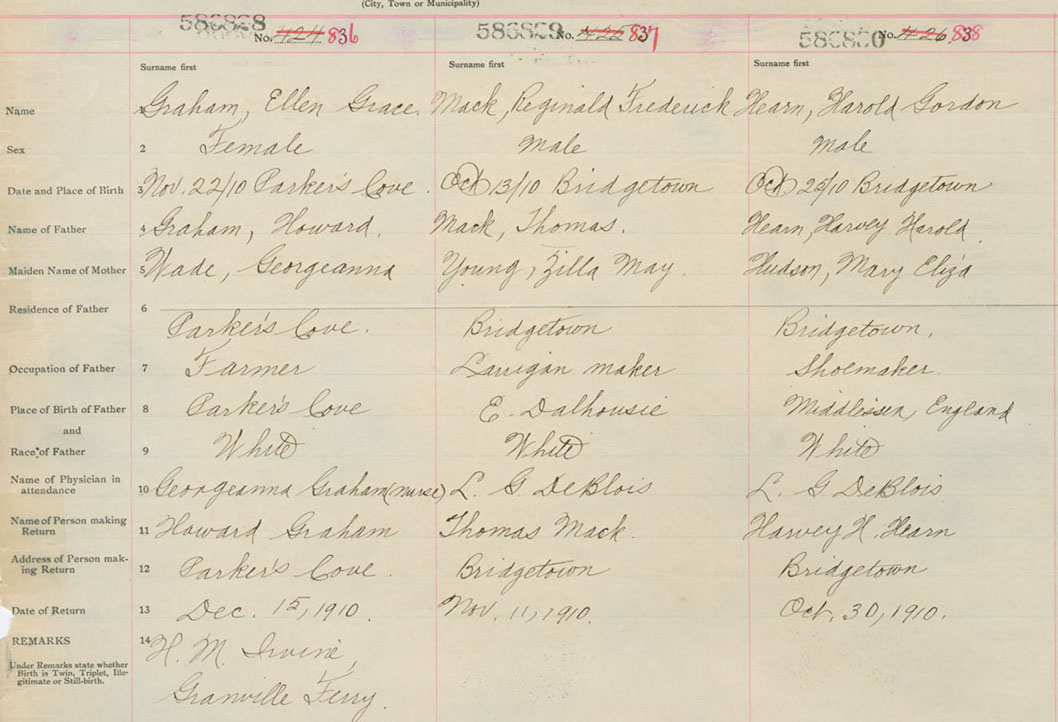 (City, Town or Municipality)
586828 No. 424 836
586829 No. 425 837
586830 No. 426 838
Surname first Surname first Surname first
Name 1 Graham, Ellen Grace. Mack, Reginald Frederick Hearn, Harold Gordon
Sex 2 Female Male Male
Date and Place of Birth 3 Nov. 22/10 Parker's Cove. Oct 13/10 Bridgetown Oct 25/10 Bridgetown
Name of Father 4 Graham, Howard. Mack, Thomas. Hearn, Harvey Harold.
Maiden Name of Mother 5 Wade, Georgeanna Young, Zilla May. Hudson, Mary Eliza
Residence of Father 6
Parker's Cove. Bridgetown Bridgetown.
Occupation of Father 7 Farmer Larrigan maker Shoemaker.
Place of Birth of Father 8 Parker's Cove E. Dalhousie England
and
Race of Father 9 White White White
Name of Physician in
attendance 10 Georgeanna Graham (nurse) L. G. DeBlois L. G. DeBlois
Name of Person making
Return 11 Howard Graham Thomas Mack. Harvey H. Hearn
Address of Person mak-
ing Return 12 Parker's Cove. Bridgetown Bridgetown
Date of Return 13 Dec. 15, 1910. Nov. 11, 1910. Oct. 30, 1910.
REMARKS 14 H. M. Irvine,
Under Remarks state whether
Birth is Twin, Triplet, Ille-
gitimate or Still-birth.
Granville Ferry.